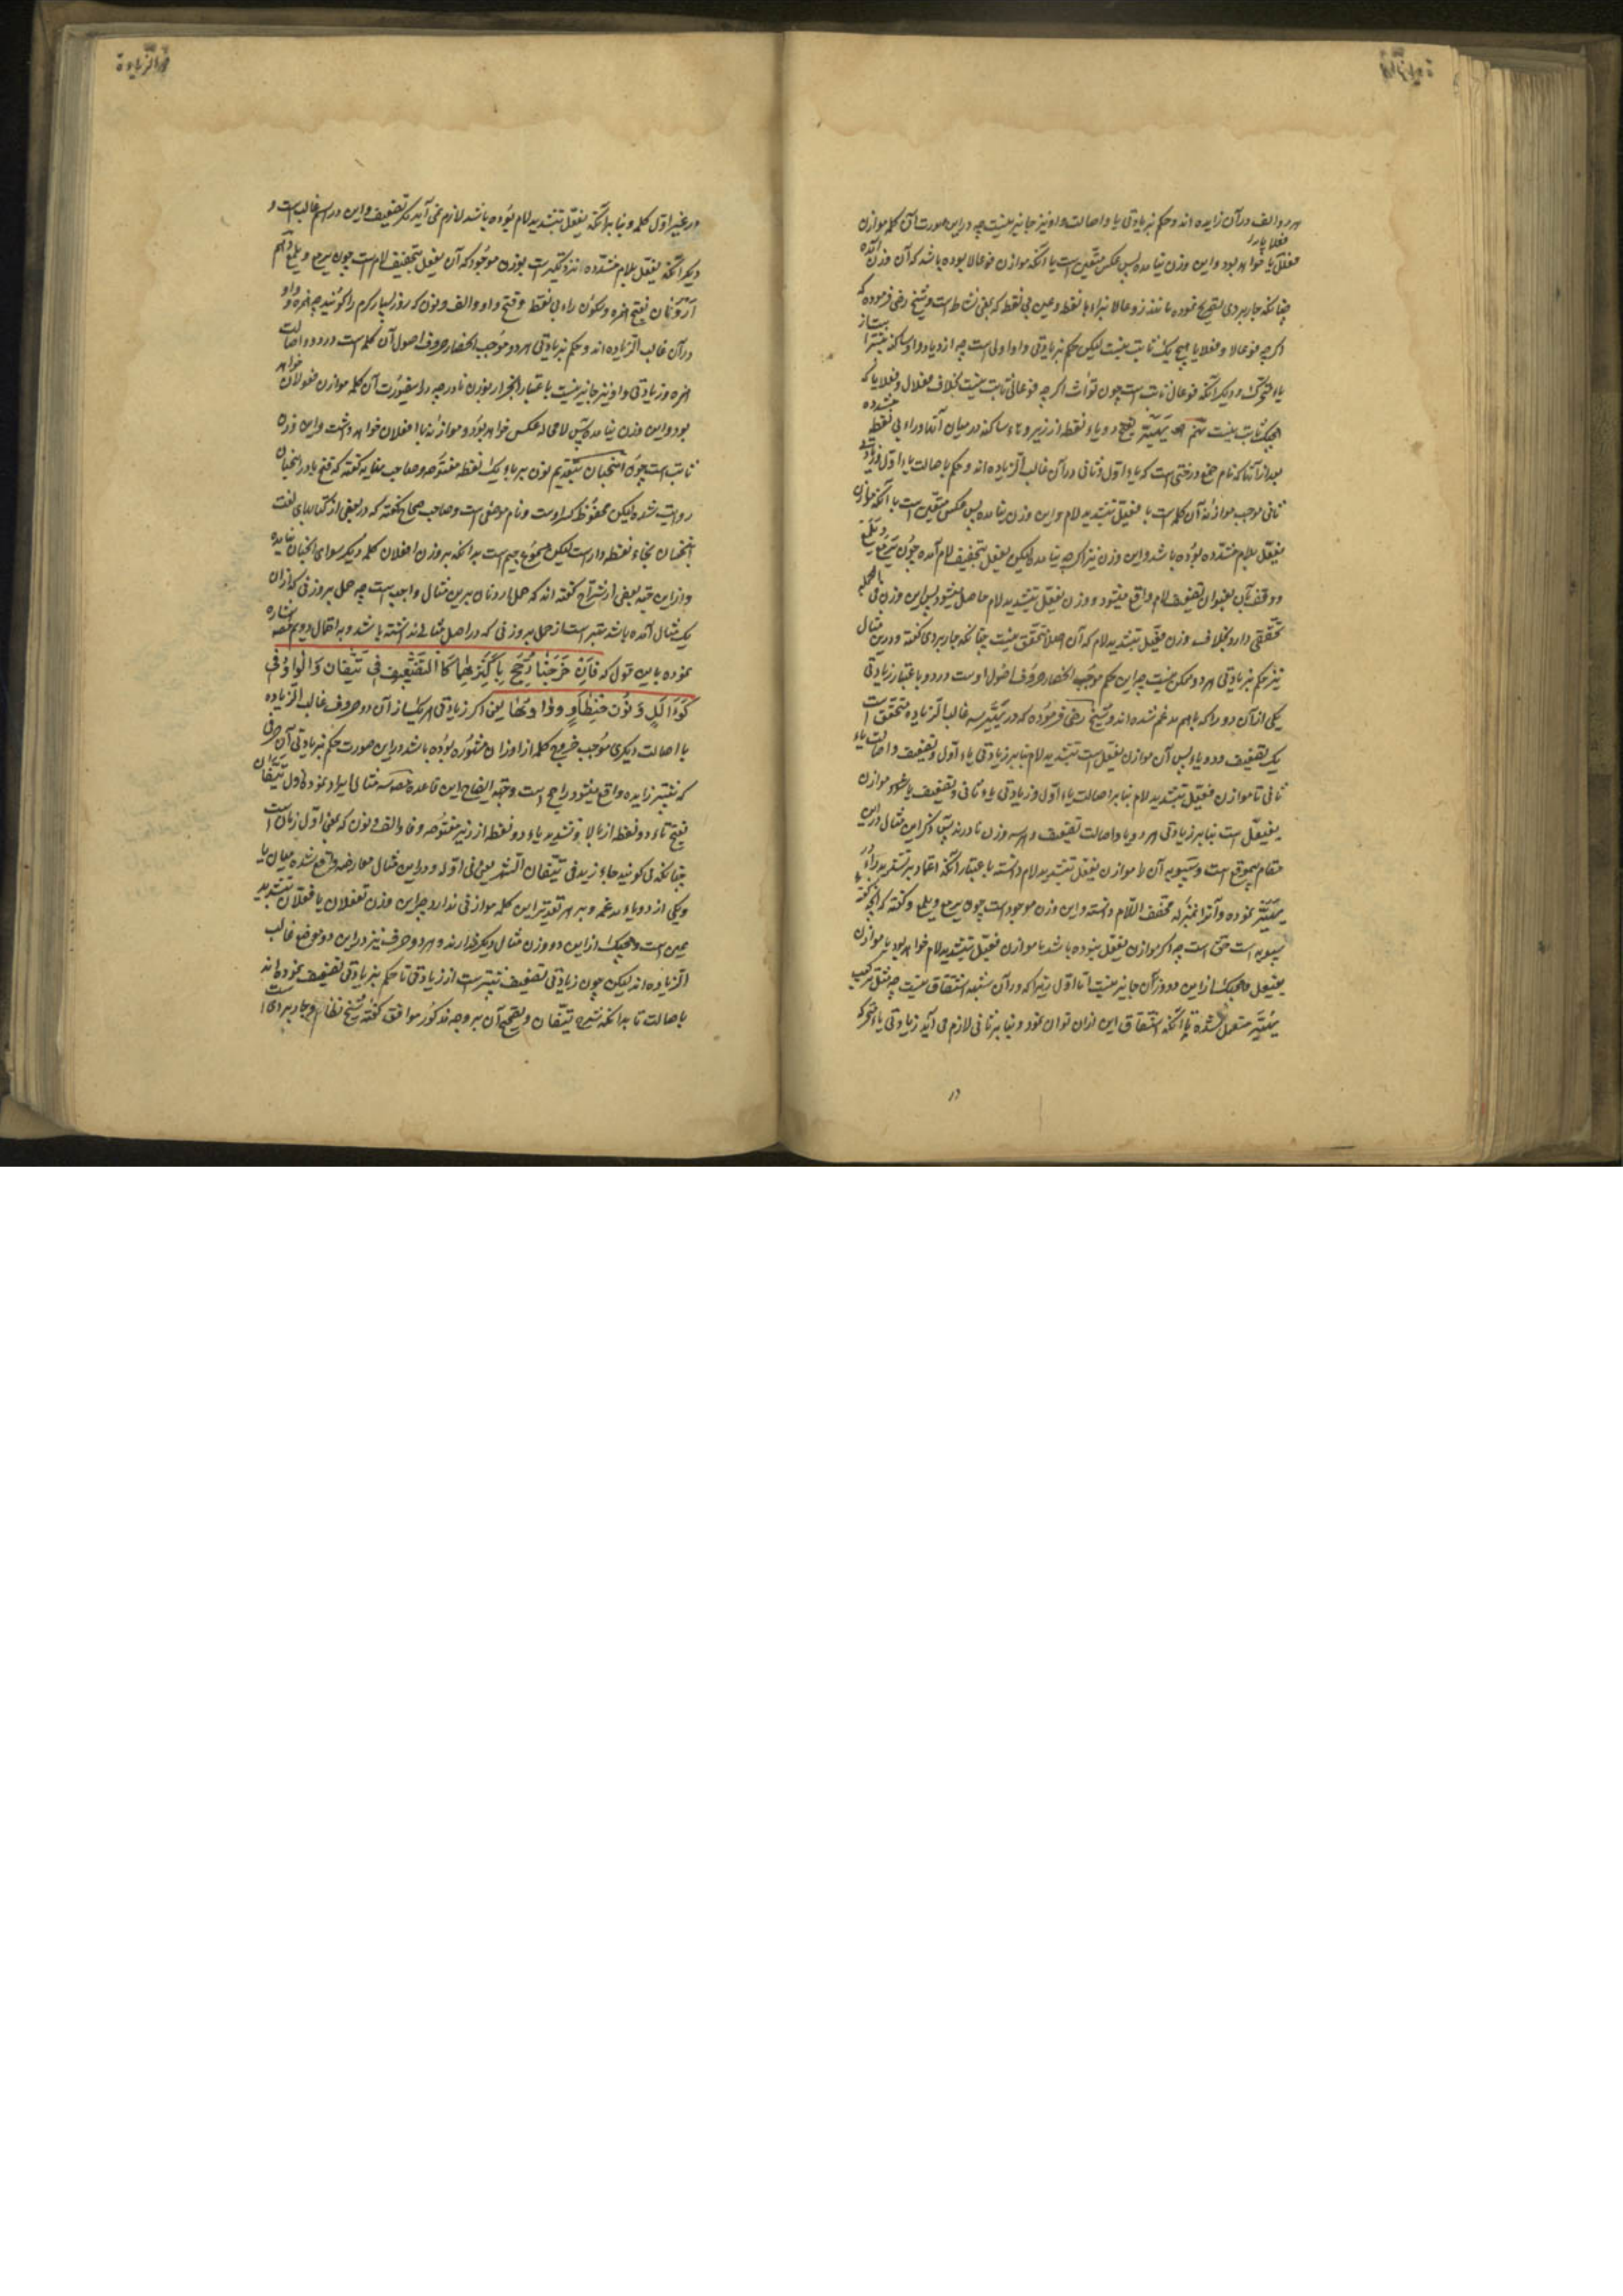 هر دو الف در آن زایده اند و حکم بزیادتی یا و اصالت واو نیز جایز نیست چه در این صورت آن کلمه موازن
فعلایا خواهد بود و این وزن نیامده پس عکس متعین است یا آنکه موازن فوعالا بوده باشد که آن وزن آمده
چنانکه جاربردی تصریح نموده مانند زوعالا بزاء با نقطه و عین بی نقطه که بمعنی نشاط است و شیخ رضی فرموده که
اگر چه فوعالا و فعلایا هیچ یک ثابت نیست لیکن حکم بزیادتی واو اولی است چه ازدیاد واو ساکنه بیشتر از
یاء متحرک و دیگر آنکه فوعال ثابت است چون توراث اگر چه فوعالی ثابت نیست بخلاف فعلال و فعلایا که
هیچیک ثابت نیست یهیر بفتح دو یاء دو نقطه از زیر و هاء ساکنه در میان آنها و راء بی نقطه مشدده
بعد از آنها که نام صمغ درختی است که یاء اول و ثانی در آن غالب الزیاده اند و حکم باصالت یاء اول و زیادتی
ثانی موجب موازنه آن کلمه است با فعیل بتشدید لام و این وزن نیامده پس عکس متعین است با آنکه موازن
یفعل بلام مشدده بوده باشد و این وزن نیز اگر چه نیامده لیکن یفعل بتخفیف لام آمده چون یرمع و یلمع
و وقف بر آن بعنوان تضعیف لام واقع میشود و وزن یفعل بتشدید لام حاصل میشود پس این وزن فی الجمله
تحققی دارد بخلاف وزن فعیل بتشدید لام که آن اصلا تحقق نیست چنانکه جاربردی گفته و در این مثال
نیز حکم بزیادتی هر دو ممکن نیست چه این حکم موجب انحصار حروف اصول اوست در دو باعتبار زیادتی
یکی از آن دو راء که باهم مدغم شده اند و شیخ رضی فرموده که در یهیر سه غالب الزیاده متحقق است
یک تضعیف و دو یاء پس آن موازن یفعل است بتشدید لام بنا بر زیادتی یاء اول و تضعیف و اصالت یاء
ثانی تا موازن فعیل بتشدید لام بنا بر اصالت یاء اول و زیادتی یاء ثانی و تضعیف یا موازن
یفیعل است بنا بر زیادتی هر دو یا و اصالت تضعیف و هر سه وزن نادرند پس ذکر این مثال در این
مقام بیموقع است و سیبویه آن را موازن یفعل بتشدید لام دانسته باعتبار آنکه اعتماد بر تشدید راء در
یهیر نموده و آنرا بمنزله مخفف اللام دانسته و این وزن موجود است چون یرمع و یلمع و گفته که آنچه گفته
سیبویه است حق است چه اگر موازن یفعل نبوده باشد یا موازن فعیل بتشدید لام خواهد بود یا موازن
یفیعل و هیچیک از این دو وزن جایز نیست اما اول زیرا که در آن شبهه اشتقاق نیست چه مثل ترکیب
یهیر مستعمل نشده تا آنکه اشتقاق این از آن توان نمود و بنا بر ثانی لازم می آید زیادتی یاء متحرکه
در
در غیر اول کلمه و بنا بر آنکه یفعل بتشدید لام بوده باشد لازم نمی آید مگر تضعیف و این در اسم غالب است و
دیگر آنکه یفعل بلام مشدده اندک تغییر است بوزن موجود که آن یفعل بتخفیف لام است چون یرمع و یلمع و هم
ارونان بفتح همزه و سکون راء بی نقطه و فتح واو و الف و نون که روز بسیار گرم را گویند چه همزه و واو
در آن غالب الزیاده اند و حکم بزیادتی هر دو موجب انحصار حروف اصول آن کلمه است در دو و اصالت
همزه و زیادتی واو نیز جایز نیست باعتبار انجرار بوزن نادر چه در اینصورت آن کلمه موازن فعولان خواهد
بود و این وزن نیامده پس لامحاله عکس خواهد بود و موازنه با افعلان خواهد داشت و این وزن
ثابت است چون انبجان بتقدیم نون بر باء یک نقطه مفتوحه و صاحب مغایه گفته که فتح باء در انبجان
روایت شده لیکن محفوظ کسر اوست و نام موضعی است و صاحب صحاح گفته که در بعضی از کتابهای لغت
انبخان بخاء نقطه دار است لیکن مسموع بجیم است بدانکه بر وزن افعلان کلمه دیگر سوای انبجان نیامده
و از این جهة بعضی از شراح گفته اند که حمل ارونان برین مثال واجب است چه حمل بر وزنی که از آن
یک مثال آمده باشد بهتر است از حمل بر وزنی که در اصل مثالی نداشته باشد و به احتمال دویم اشاره
نموده باین قول که فَاِنْ خَرَجَتَا رُجِّحَ بِاَكْثَرِهِمَا كَالتَّضْعِيفِ فِي تَئِفَّانَ وَالْوَاوُ فِي
كَوَأْلَلٍ وَنُونِ حِنْطَأْوٍ وَوَاوِهَا یعنی اگر زیادتی هر یک از آن دو حروف غالب الزیاده
با اصالت دیگری موجب خروج کلمه از اوزان مشهوره بوده باشد در این صورت حکم بزیادتی آن حرفی
که بیشتر زایده واقع میشود راجح است و جهة ایضاح این قاعده سه مثال ایراد نموده اول تئفان
بفتح تاء دو نقطه از بالا و تشدید یاء دو نقطه از زیر مفتوحه و فاء و الف و نون که بمعنی اول زمان است
چنانکه می گویند جاء زید فی تئفان الشهر یعنی فی اوله و در این مثال معارضه واقع شده میان تا
و یکی از دو یاء مدغمه و بر هر تقدیر این کلمه موازنی ندارد چه این وزن تفعلان یا فعلان بتشدید
عین است و هیچیک از این دو وزن مثال دیگر ندارند و هر دو حرف نیز در این دو موضع غالب
الزیاده اند لیکن چون زیادتی تضعیف بیشتر است از زیادتی تا حکم بزیادتی تضعیف نموده اند
باصالت تا بدانکه شرح تئفان و تصحیح آن بر وجه مذکور موافق گفته شیخ نظام و جاربردی است